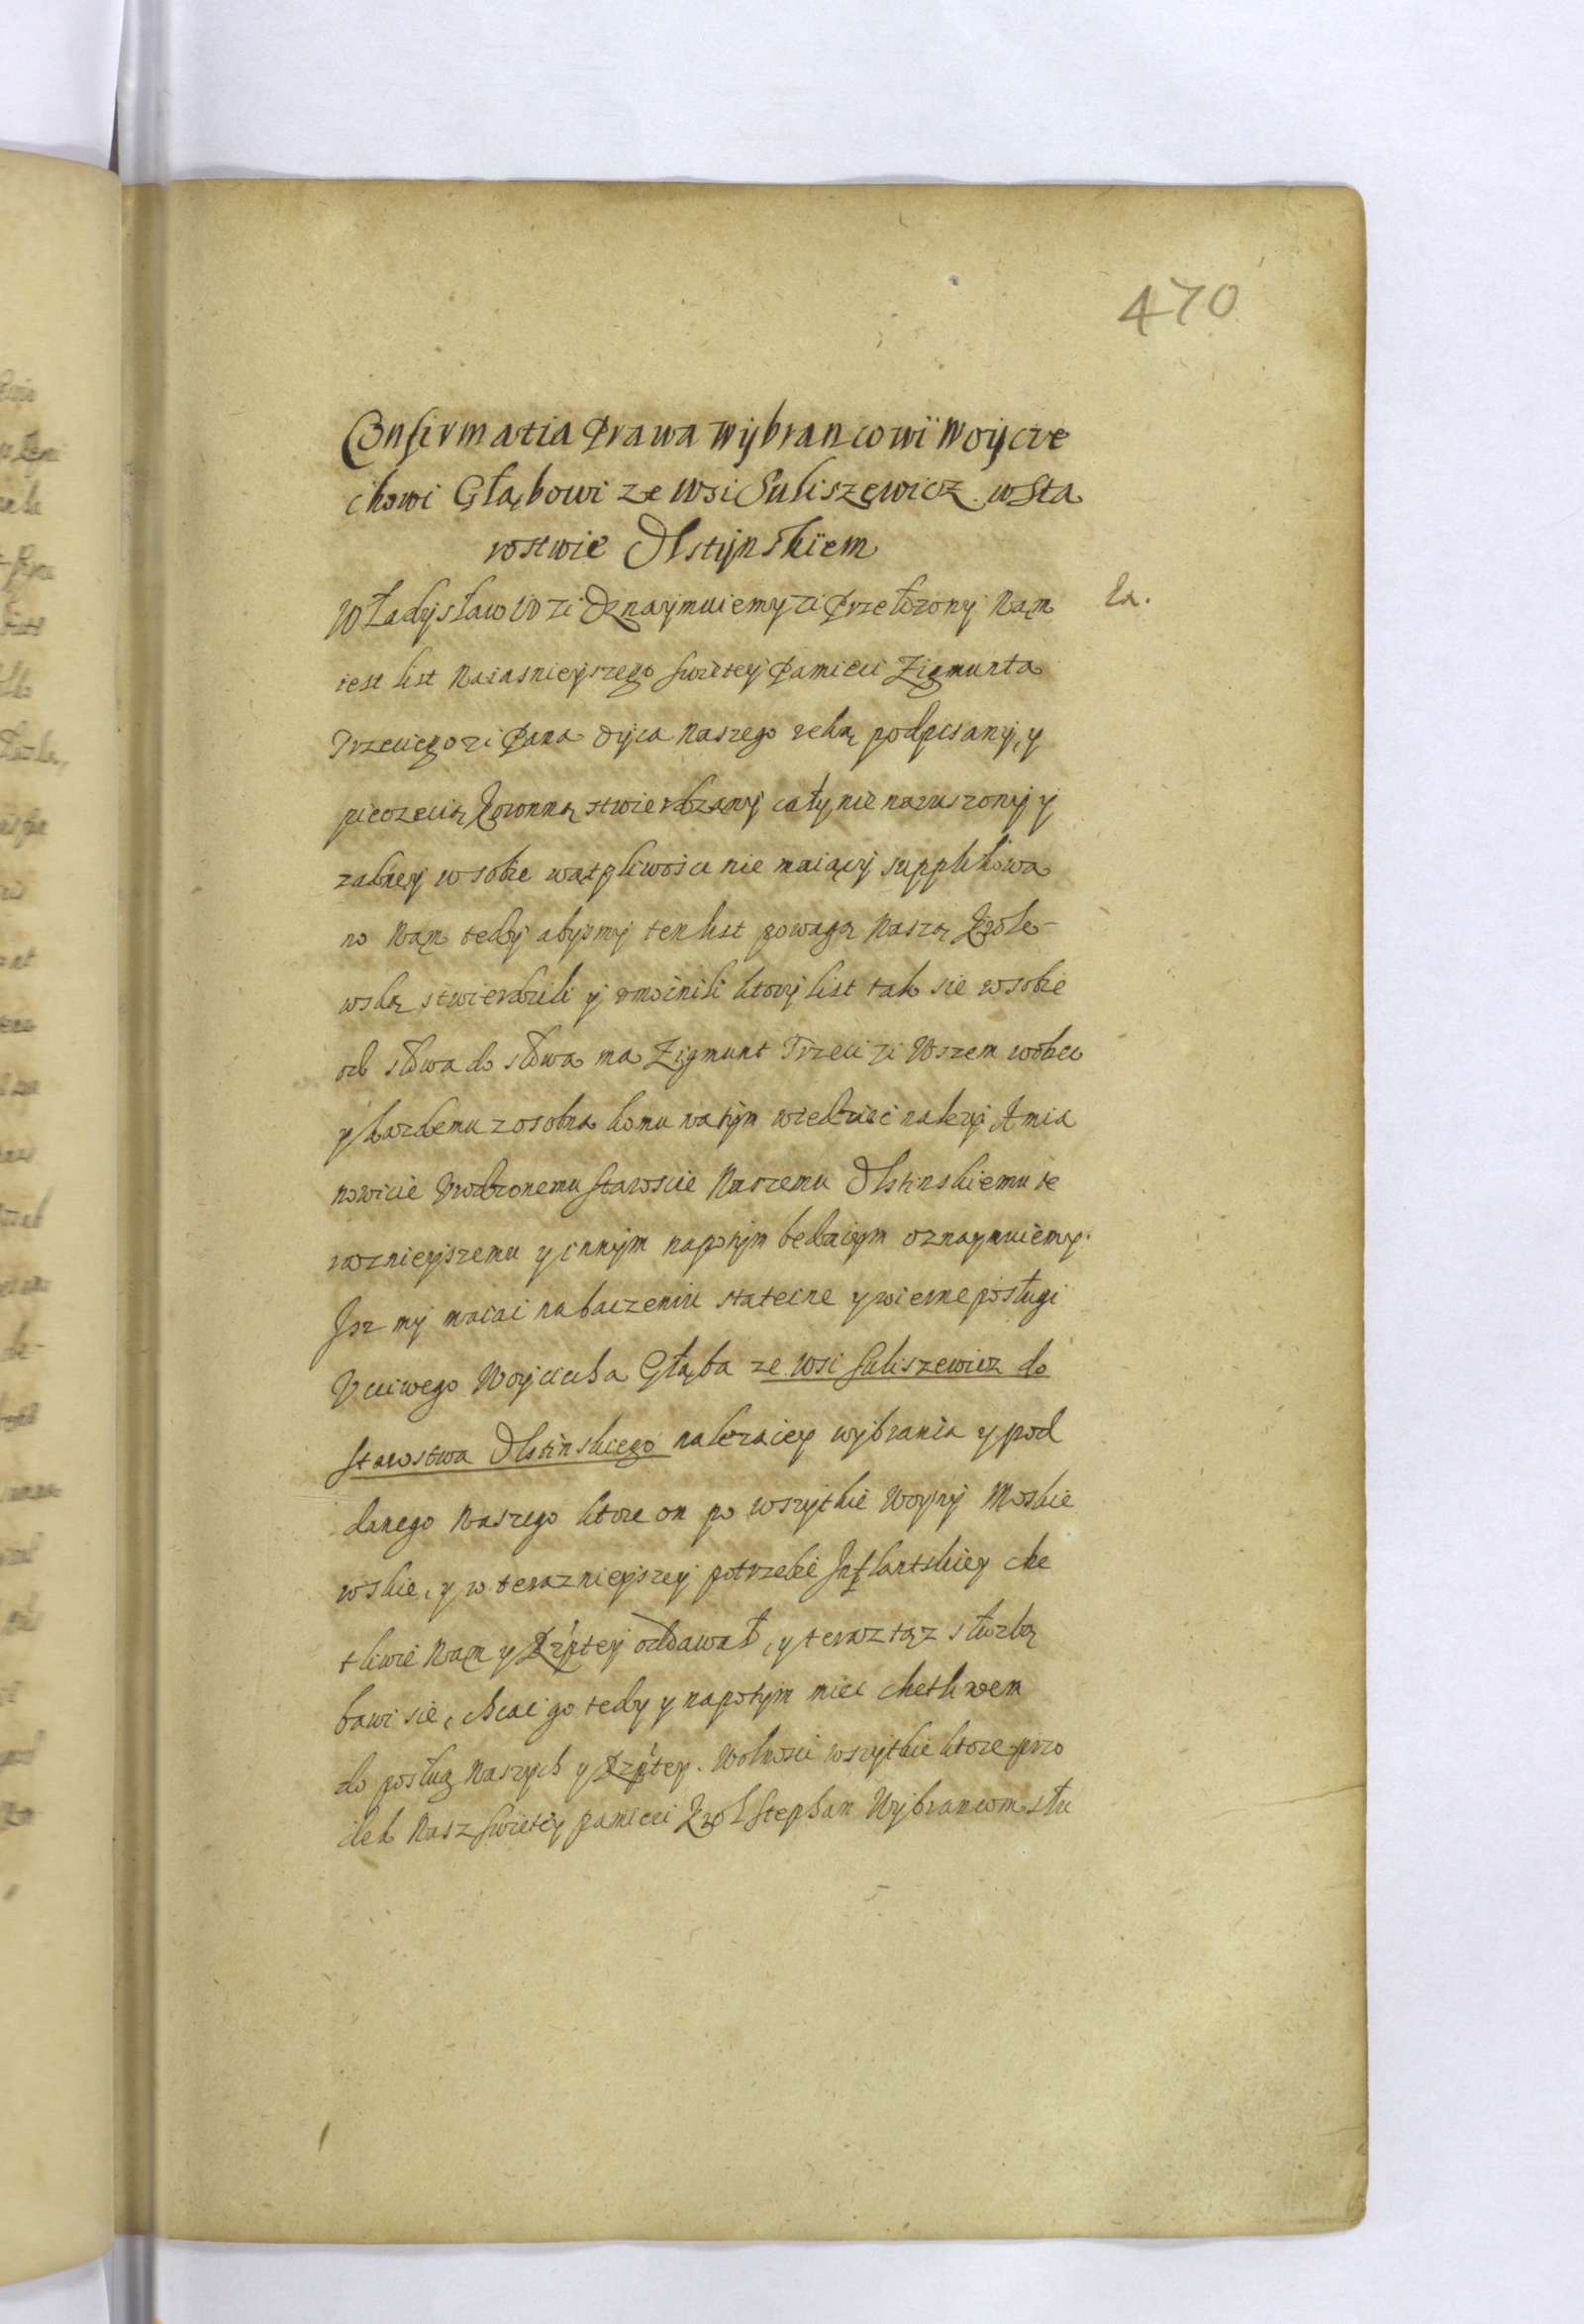 470
Confirmatia Prawa Wybrancowi Woycie
chowi Głąbowi ze wsi Suliszewicz w Sta
rostwie Olstynskiem
Władysław IV zi Oznaymuiemy zi Przełozony Nąm
iest list Naiasnieyszego swietey Pamieci Zigmunta
Trzeciego zi Pana oyca Naszego reką podpisany, y
pieczecią Koronną stwierdzony cały nie naruszony y
zadney w sobie wątpliwości nie maiący supplikowa
no Nąm tedy abysmy ten list powagą Naszą Krole-
wską stwierdzili y zmocnili ktory list tak sie w sobie
od słowa do słowa ma Zigmunt Trzeci zi Wszem wobec
y kazdemu zosobna komu na tym wiedziec nalezy, A mia
nowicie Vrodzonemu Staroscie Naszemu Olstinskiemu te
razniejszemu y innym napotym bedącym oznaymuiemy.
Isz my maiac na baczeniu stateczne y wierne posługi
Vcciwego Woyciecha Głąba ze wsi Suliszewicz do
Starostwa Olstinskiego nalezacey wybranca y pod
danego Naszego ktore on po wszytkie Woyny Moskie
wskie, y w terazniejszey potrzebie Inflantskiey che
tliwie Nąm y Rzptey oddawał, y teraz tąz słuzbą
bawi sie, chcac go tedy y napotym miec chetliwem
do posług Naszych y Rzptey. Wolnosci wszytkie ktore przo
dek Nasz swietey pamieci Krol Stephan Wybrancom słu